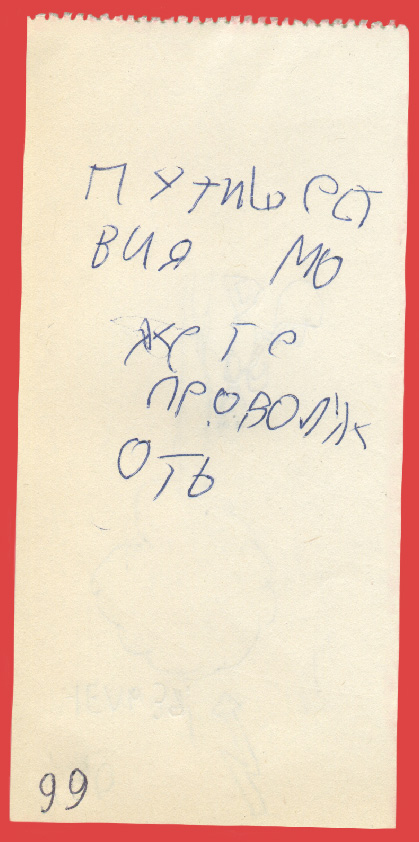 ПУТИШЕСТ
ВИЯ МО
ЖЕТЕ
ПРОВОЛЖ
ОТЬ
99